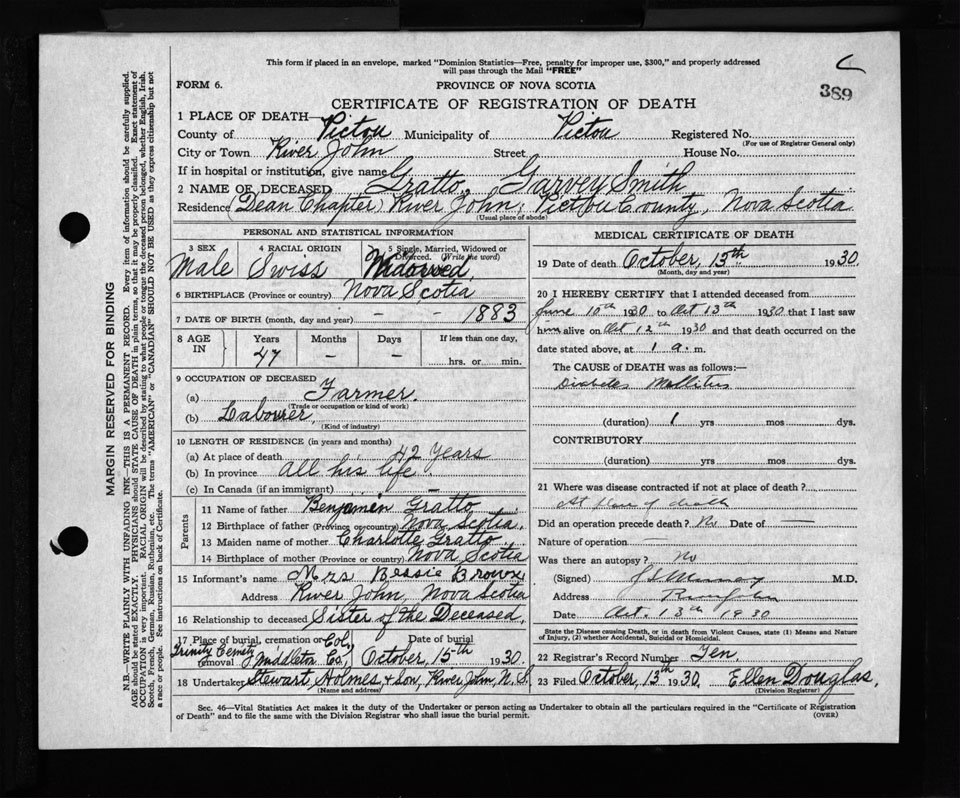 This form if placed in an envelope, marked "Dominion Statistics—Free, penalty for improper use, $300," and properly addressed
will pass through the Mail "FREE"
FORM 6.
PROVINCE OF NOVA SCOTIA
389
CERTIFICATE OF REGISTRATION OF DEATH
1 PLACE OF DEATH—
County of Pictou Municipality of Pictou Registered No.
(For use of Registrar General only)
City or Town River John Street House No.
If in hospital or institution, give name
2 NAME OF DECEASED Gratto, Garvey Smith
Residence (Dean Chapter) River John, Pictou County, Nova Scotia
(Usual place of abode)
PERSONAL AND STATISTICAL INFORMATION
3 SEX Male
4 RACIAL ORIGIN Swiss
5 Single, Married, Widowed or Divorced. (Write the word) Widowed
6 BIRTHPLACE (Province or country) Nova Scotia
7 DATE OF BIRTH (month, day and year) - - 1883
8 AGE IN Years 47 Months — Days — If less than one day, hrs. or min.
9 OCCUPATION OF DECEASED
(a) Farmer.
(Trade or occupation or kind of work)
(b) Labourer,
(Kind of industry)
10 LENGTH OF RESIDENCE (in years and months)
(a) At place of death 42 Years
(b) In province all his life
(c) In Canada (if an immigrant) —
Parents
11 Name of father Benjamin Gratto
12 Birthplace of father (Province or country) Nova Scotia.
13 Maiden name of mother Charlotte Gratto
14 Birthplace of mother (Province or country) Nova Scotia
15 Informant's name Mrs Bessie Brown
Address River John, Nova Scotia
16 Relationship to deceased Sister of the Deceased.
17 Place of burial, cremation or removal Trinity Cemety Middleton Col. Co. Date of burial October, 15th 1930.
18 Undertaker Stewart Holmes & Son, River John, N. S.
(Name and address)
MEDICAL CERTIFICATE OF DEATH
19 Date of death October, 13th 1930.
(Month, day and year)
20 I HEREBY CERTIFY that I attended deceased from
June 10th 1930 to Oct 13th 1930 that I last saw
him alive on Oct 12th 1930 and that death occurred on the
date stated above, at 1 a. m.
The CAUSE of DEATH was as follows:—
Diabetes Mellitus
(duration) 1 yrs mos dys.
CONTRIBUTORY
(duration) yrs mos dys.
21 Where was disease contracted if not at place of death?
At place of death
Did an operation precede death? No Date of —
Nature of operation —
Was there an autopsy? No
(Signed) M.D.
Address River John
Date Oct. 13th 1930
State the Disease causing Death, or in death from Violent Causes, state (1) Means and Nature
of Injury, (2) whether Accidental, Suicidal or Homicidal.
22 Registrar's Record Number Ten.
23 Filed October, 13th 1930. Ellen Douglas,
(Division Registrar)
Sec. 46—Vital Statistics Act makes it the duty of the Undertaker or person acting as Undertaker to obtain all the particulars required in the "Certificate of Registration
of Death" and to file the same with the Division Registrar who shall issue the burial permit.
(OVER)
MARGIN RESERVED FOR BINDING
N.B.—WRITE PLAINLY WITH UNFADING INK—THIS IS A PERMANENT RECORD. Every item of information should be carefully supplied.
AGE should be stated EXACTLY. PHYSICIANS should STATE CAUSE OF DEATH in plain terms, so that it may be properly classified. Exact statement of
OCCUPATION is very important. RACIAL ORIGIN will be described by stating to what people or tongue the deceased person belonged, whether English, Irish,
Scotch, French, German, Russian, Ruthenian, etc. The terms "AMERICAN" or "CANADIAN" SHOULD NOT BE USED as they express citizenship but not
a race or people. See instructions on back of Certificate.